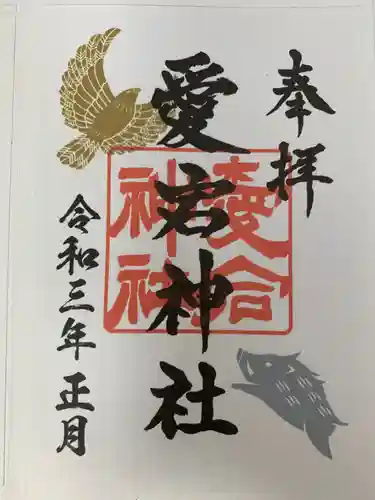 奉拝
愛宕神社
愛宕
神社
令和三年正月